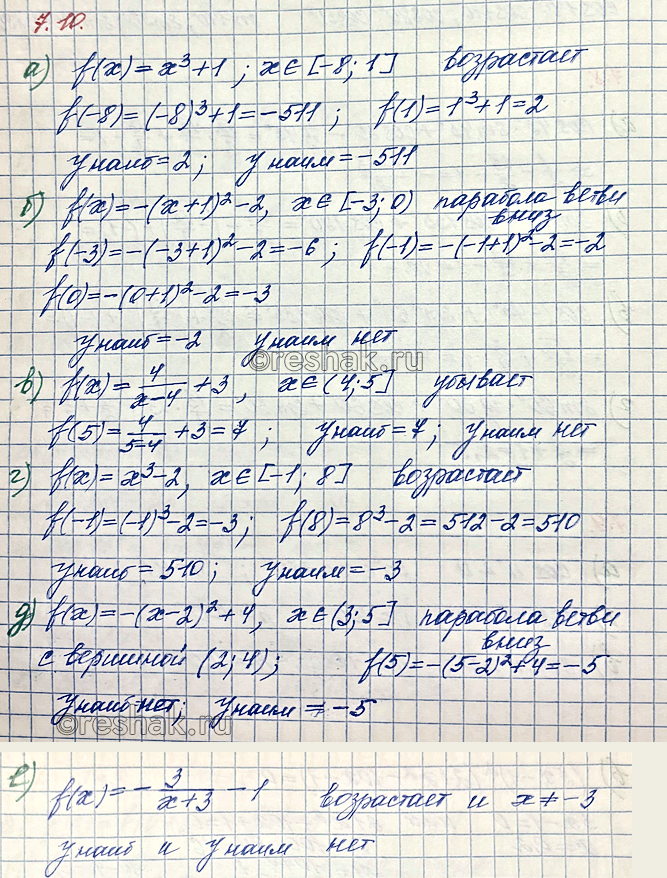 7.10.
а) f(x) = x³+1 ; x ∈ [-8; 1] возрастает
f(-8) = (-8)³+1 = -511 ; f(1) = 1³+1 = 2
y наиб = 2 ; y наим = -511
б) f(x) = -(x+1)² -2, x ∈ [-3; 0) парабола ветви
вниз
f(-3) = -(-3+1)² -2 = -6 ; f(-1) = -(-1+1)² -2 = -2
f(0) = -(0+1)² -2 = -3
y наиб = -2 y наим нет
©reshak.ru
в) f(x) = 4/(x-4) + 3, x ∈ (4; 5] убывает
f(5) = 4/(5-4) + 3 = 7 ; y наиб = 7 ; y наим нет
г) f(x) = x³-2, x ∈ [-1; 8] возрастает
f(-1) = (-1)³-2 = -3 ; f(8) = 8³-2 = 512-2 = 510
y наиб = 510 ; y наим = -3
д) f(x) = -(x-2)² +4, x ∈ (3; 5] парабола ветви
вниз
с вершиной (2; 4) ; f(5) = -(5-2)²+4 = -5
y наиб нет; y наим = -5
©reshak.ru
е) f(x) = - 3/(x+3) - 1 возрастает и x ≠ -3
y наиб и y наим нет